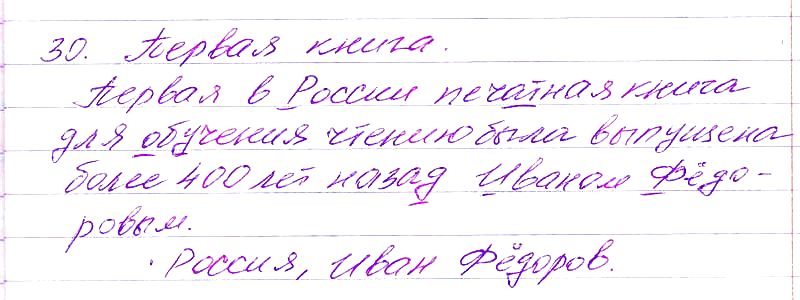 30. Первая книга.
Первая в России печатная книга
для обучения чтению была выпущена
более 400 лет назад Иваном Фёдо-
ровым.
Россия, Иван Фёдоров.